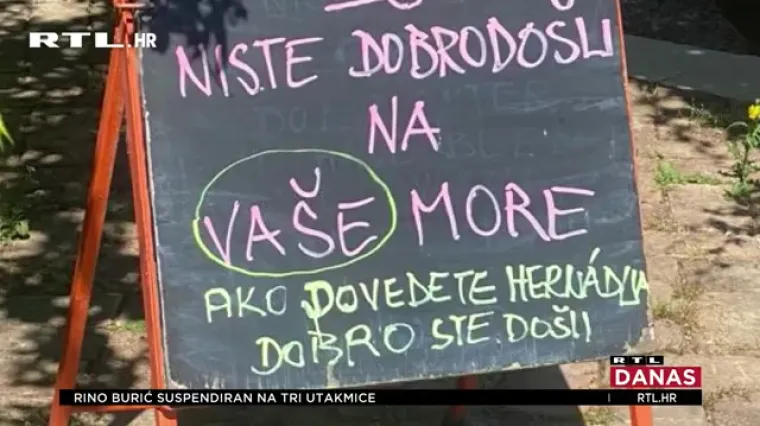 RTL.HR
NISTE DOBRODOŠLI
NA
VAŠE MORE
AKO DOVEDETE HERNÁDIJA
DOBRO STE DOŠLI
RTL
DANAS
RINO BURIĆ SUSPENDIRAN NA TRI UTAKMICE
RTL.HR